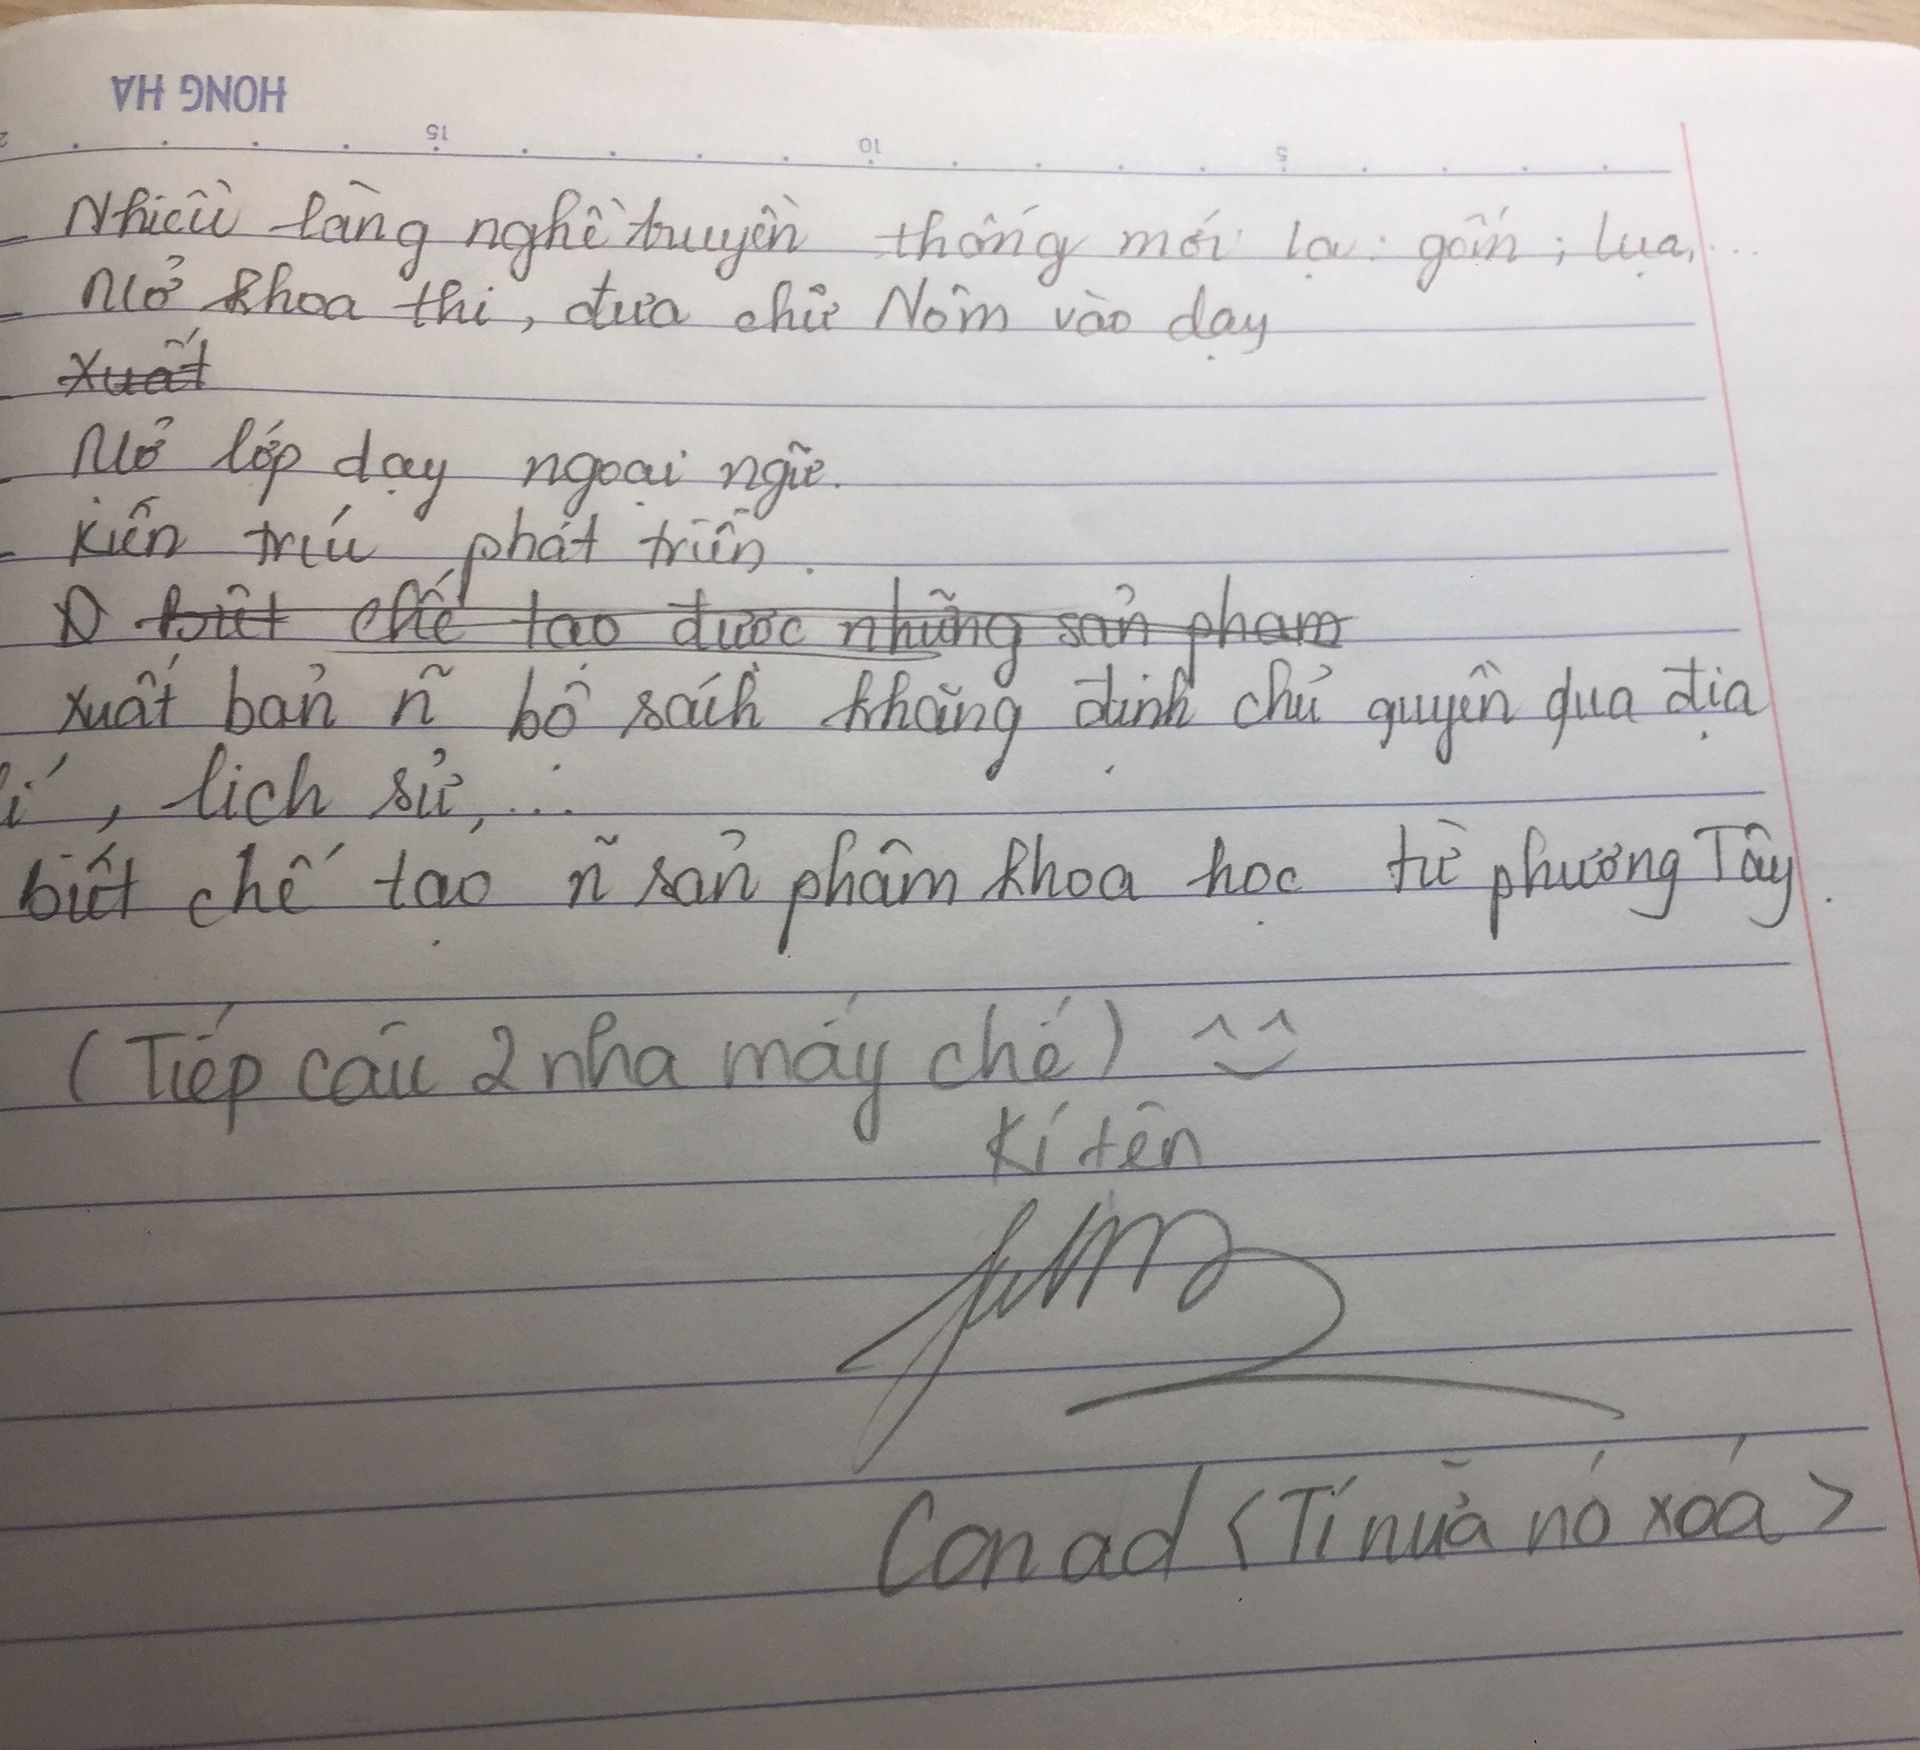 HONG HA
15 10 5
- Nhiều làng nghề truyền thống mới lạ: gốm; lụa,...
- Mở khoa thi, đưa chữ Nôm vào dạy
- Xuất
- Mở lớp dạy ngoại ngữ.
- Kiến trúc phát triển.
biết chế tạo được những sản phẩm
xuất bản ñ bộ sách khẳng định chủ quyền qua địa
lí, lịch sử,...
biết chế tạo ñ sản phẩm khoa học từ phương Tây.
(Tiếp câu 2 nha máy ché) ^^
Kí tên
Con ad <Tí nữa nó xoá>